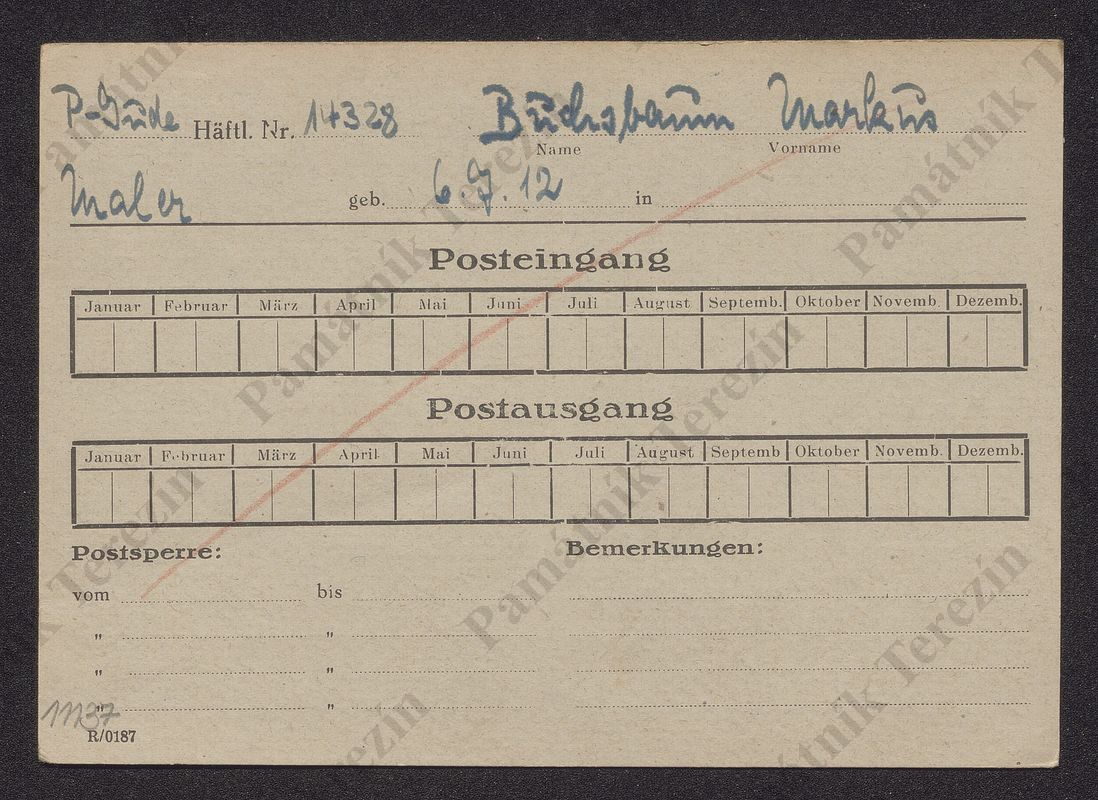 P-Jude Häftl. Nr. 14328 Buchsbaum Markus
Name Vorname
Maler geb. 6.7.12 in
Posteingang
Januar Februar März April Mai Juni Juli August Septemb. Oktober Novemb. Dezemb.
Postausgang
Januar Februar März April Mai Juni Juli August Septemb Oktober Novemb. Dezemb.
Postsperre: Bemerkungen:
vom bis
" "
" "
" "
11137
R/0187
Památník Terezín